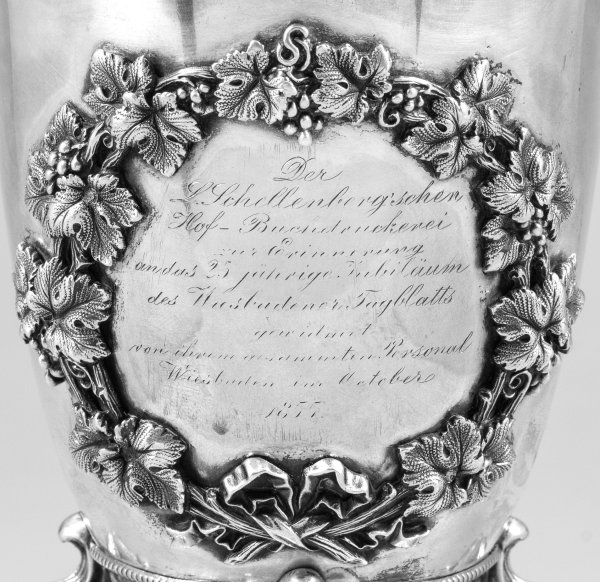 Der
L. Schellenberg'schen
Hof-Buchdruckerei
zur Erinnerung
an das 25 jährige Jubiläum
des Wiesbadener Tagblatts
gewidmet
von ihrem gesammten Personal
Wiesbaden im October
1877.